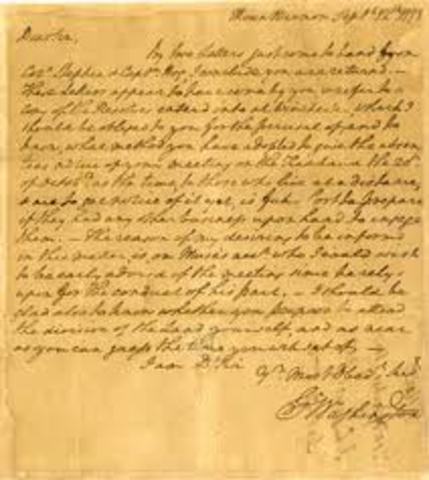 Mount Vernon Sept. 12th 1773
Dear Sir,
By two Letters just come to hand from
Colo. Stephen & Captn. Hog I conclude you are returned.
These Letters appear to have come by you & refer to a
Copy of the Resolves enterd into at Winchester which I
should be obliged to you for the perusal of, and to
know what method you have adopted to give the absen-
tees advice of your meeting on the
of Octobr. as the time, to those who live at a distance,
& are to get notice of it yet, is short to prepare
if they had any other business upon hand to engage
them. — The reason of my desiring to be informd
in this matter, is, on Muse's acct. who I would wish
to be early advised of the meeting since he relys
upon for the conduct of his part. — I should be
glad also to know whether you purpose to attend
the division of the Land yourself, and as near
as you can guess the time you will set off, —
I am Dr. Sir
Yr. Most Obedt. Servt.
Go. Washington